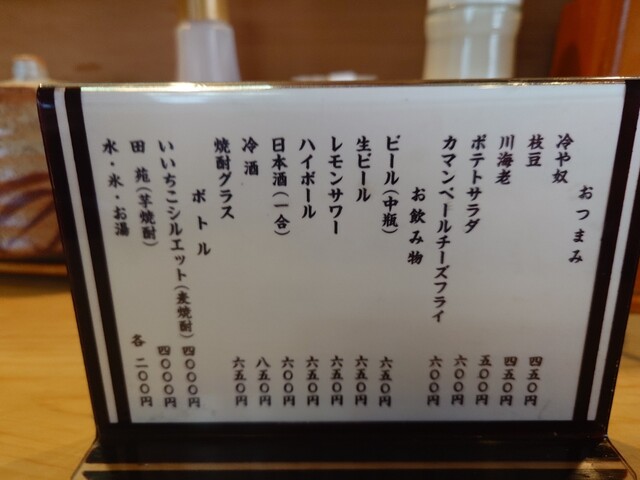 おつまみ
冷や奴 四五〇円
枝豆 四五〇円
川海老 五〇〇円
ポテトサラダ 六〇〇円
カマンベールチーズフライ 六〇〇円
お飲み物
ビール(中瓶) 六五〇円
生ビール 六五〇円
レモンサワー 六五〇円
ハイボール 六五〇円
日本酒(一合) 六〇〇円
冷酒 八五〇円
焼酎グラス 六五〇円
ボトル
いいちこシルエット(麦焼酎) 四〇〇〇円
田苑(芋焼酎) 四〇〇〇円
水・氷・お湯 各二〇〇円